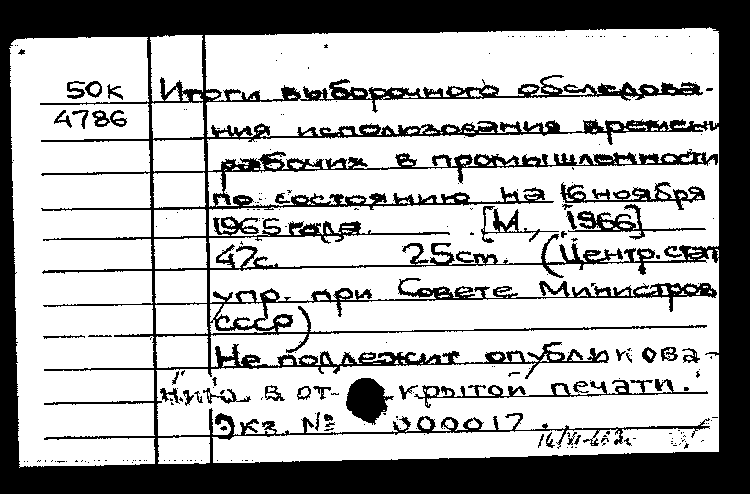 50к Итоги выборочного обследова-
4786 ния использования времени
рабочих в промышленности
по состоянию на 16 ноября
1965 года. [М., 1966]
47с. 25см. (Центр. стат
упр. при Совете Министров
СССР)
Не подлежит опубликова-
нию в открытой печати.
Экз. № 000017.